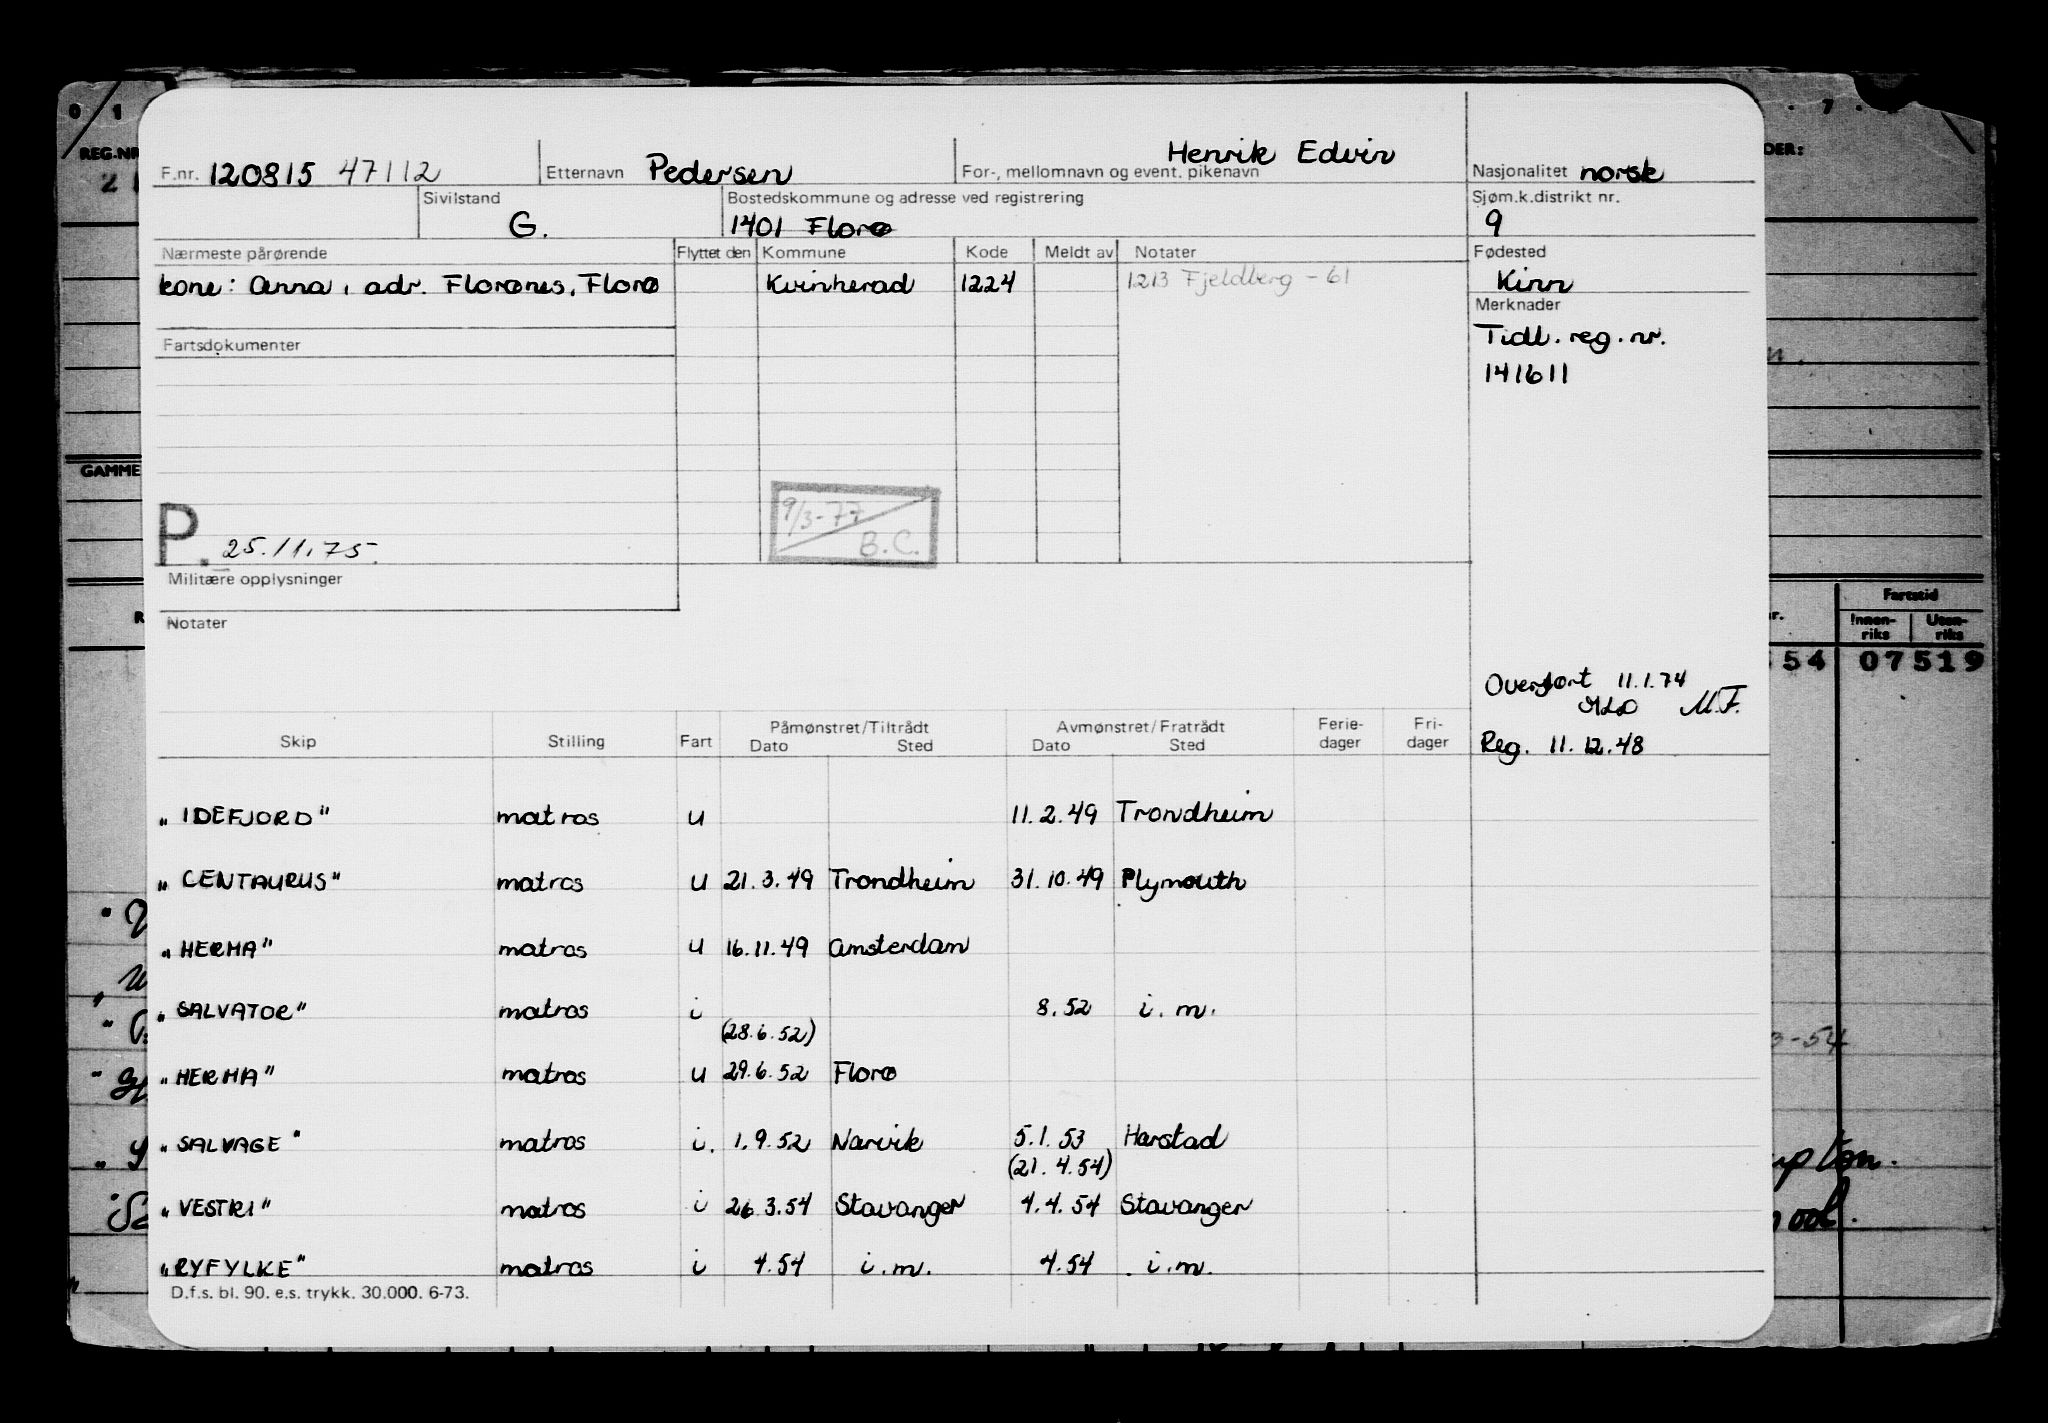 F.nr. 120815 47112 Etternavn Pedersen For-, mellomnavn og event. pikenavn Henrik Edvin Nasjonalitet norsk
Sivilstand G. Bostedskommune og adresse ved registrering 1401 Florø Sjøm.k.distrikt nr. 9
Nærmeste pårørende Flyttet den Kommune Kode Meldt av Notater Fødested
kone: Anna, adr. Florønes, Florø Kvinherad 1224 1213 Fjeldberg - 61 Kinn
Merknader
Tidl. reg. nr.
141611
Fartsdokumenter
9/3-77
B.C.
P. 25.11.75.
Militære opplysninger
Notater
Overført 11.1.74
M.F.
Reg. 11.12.48
Skip Stilling Fart Påmønstret/Tiltrådt Dato Sted Avmønstret/Fratrådt Dato Sted Ferie-dager Fri-dager
"IDEFJORD" matros u 11.2.49 Trondheim
"CENTAURUS" matros u 21.3.49 Trondheim 31.10.49 Plymouth
"HERMA" matros u 16.11.49 Amsterdam
"SALVATOR" matros i (28.6.52) 8.52 i.m.
"HERMA" matros u 29.6.52 Florø
"SALVAGE" matros i. 1.9.52 Narvik 5.1.53 Harstad
(21.4.54)
"VESTRI" matros i 26.3.54 Stavanger 4.4.54 Stavanger
"RYFYLKE" matros i 4.54 i.m. 4.54 i.m.
D.f.s. bl. 90. e.s. trykk. 30.000. 6-73.
0 1
REG.NR
GAMME
7
DER:
Fartstid
Innen-riks Uten-riks
54 07519
3-54